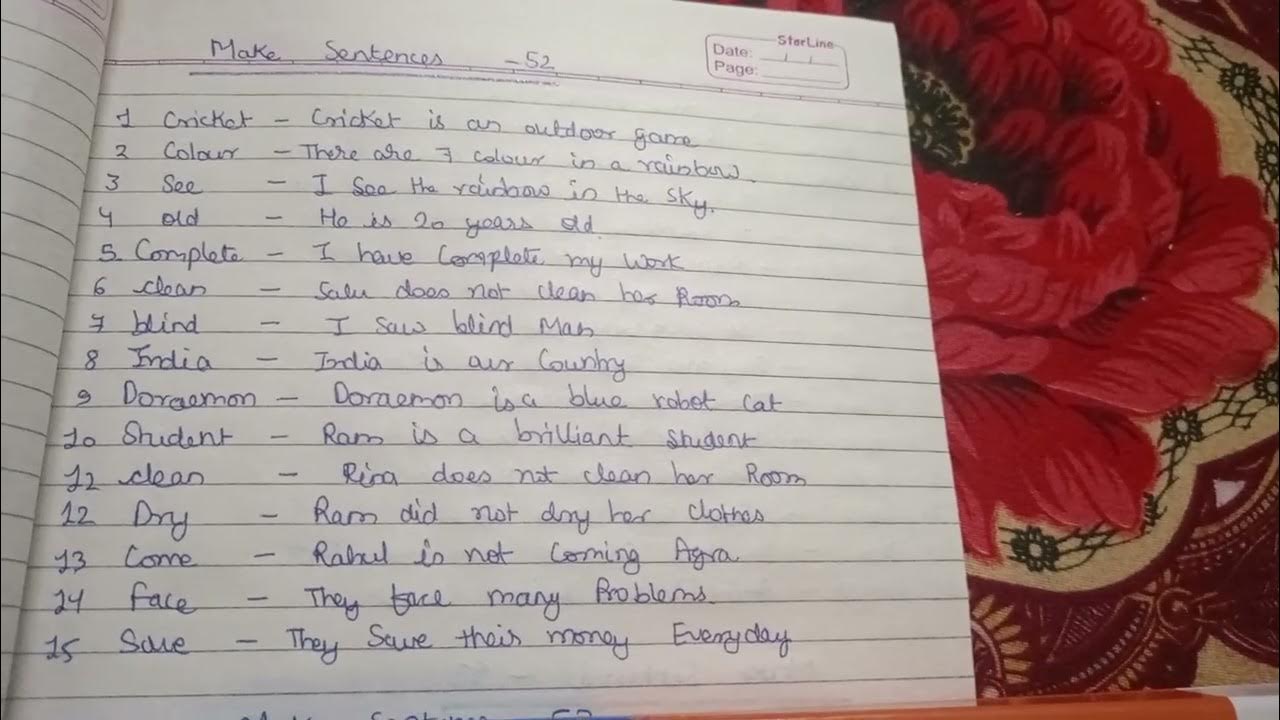 Make Sentences - 52
StarLine
Date: / /
Page:
1 Cricket - Cricket is an outdoor game
2 Colour - There are 7 colour in a rainbow.
3 See - I See the rainbow in the Sky.
4 old - He is 20 years old.
5. Complete - I have Complete my Work
6 clean - Salu does not clean her Room
7 blind - I Saw blind Man
8 India - India is our Country
9 Doraemon - Doraemon is a blue robot cat
10 Student - Ram is a brilliant student
12 clean - Rina does not clean her Room
12 Dry - Ram did not dry her clothes
13 Come - Rahul is not Coming Agra
14 face - They face many Problems.
15 Save - They Save their money Everyday